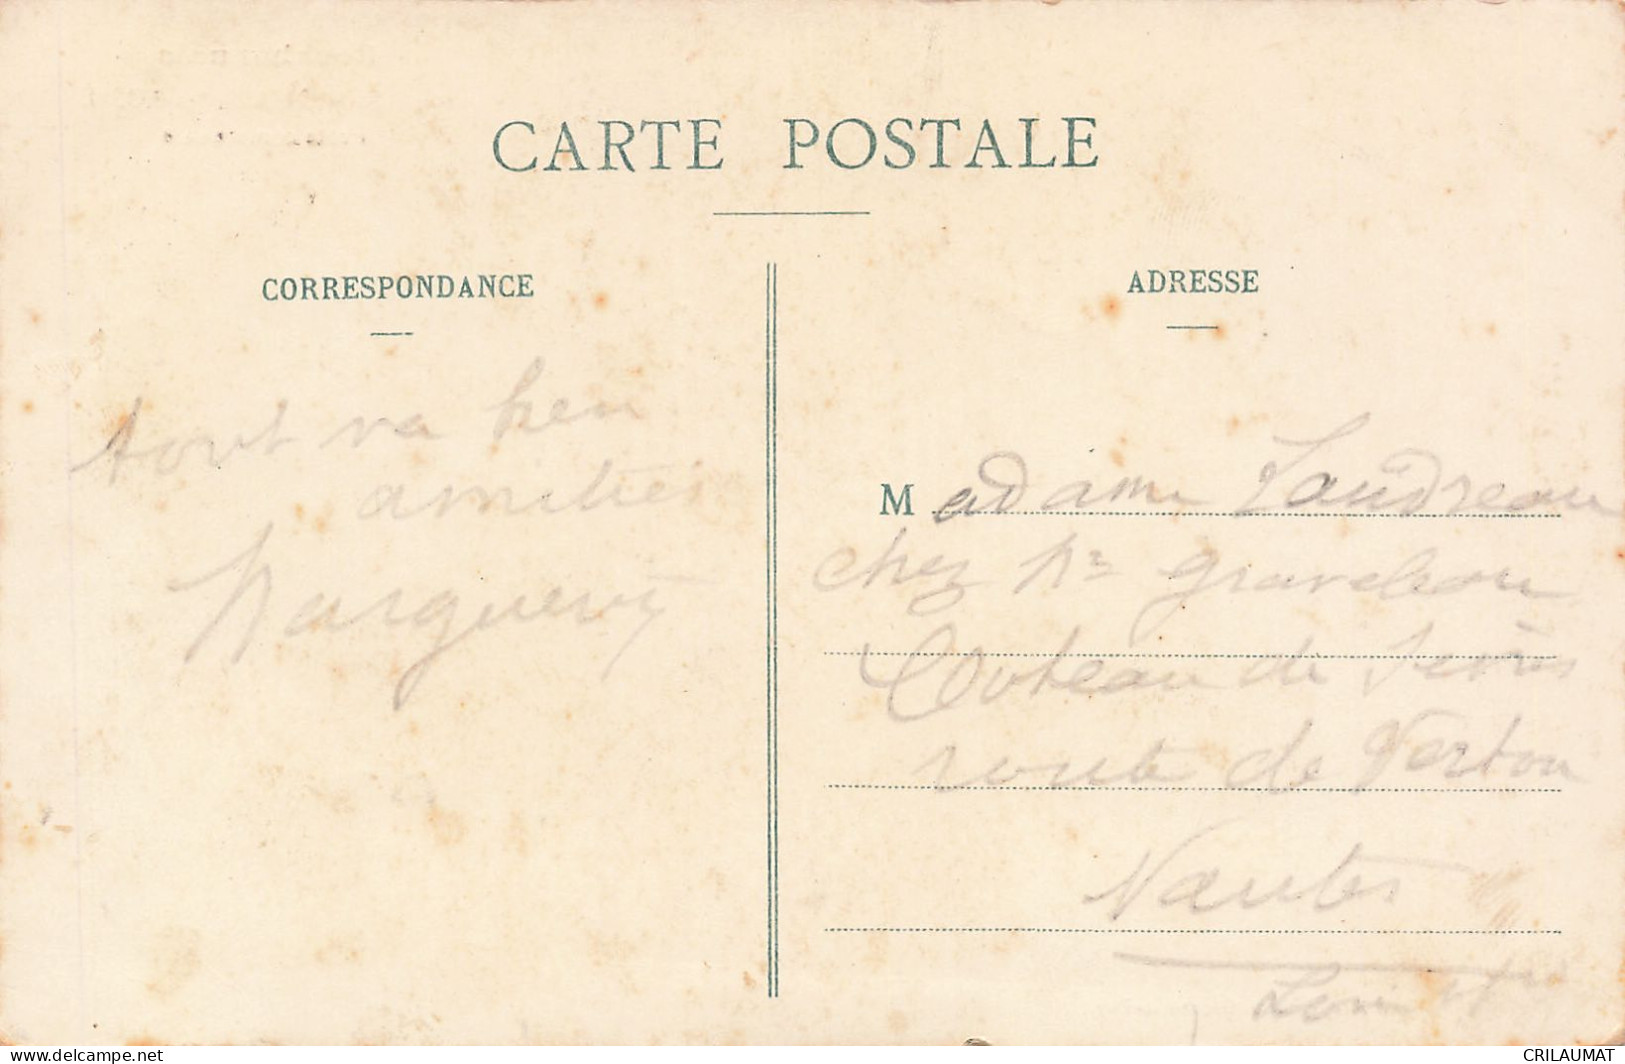 CARTE POSTALE
CORRESPONDANCE
tout va bien
amitiés
Marguerite
ADRESSE
Madame Landreau
chez Mr Gravchon
Coteau de Sèvres
route de Vertou
Nantes
Loire
delcampe.net
CRILAUMAT